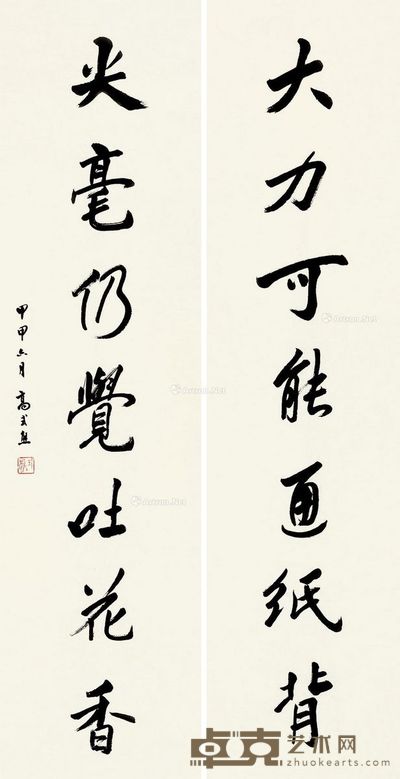 大力可能通纸背
尖毫仍覺吐花香
甲申六月 高式熊
Artron.Net
卓克艺术网
zhuokearts.com